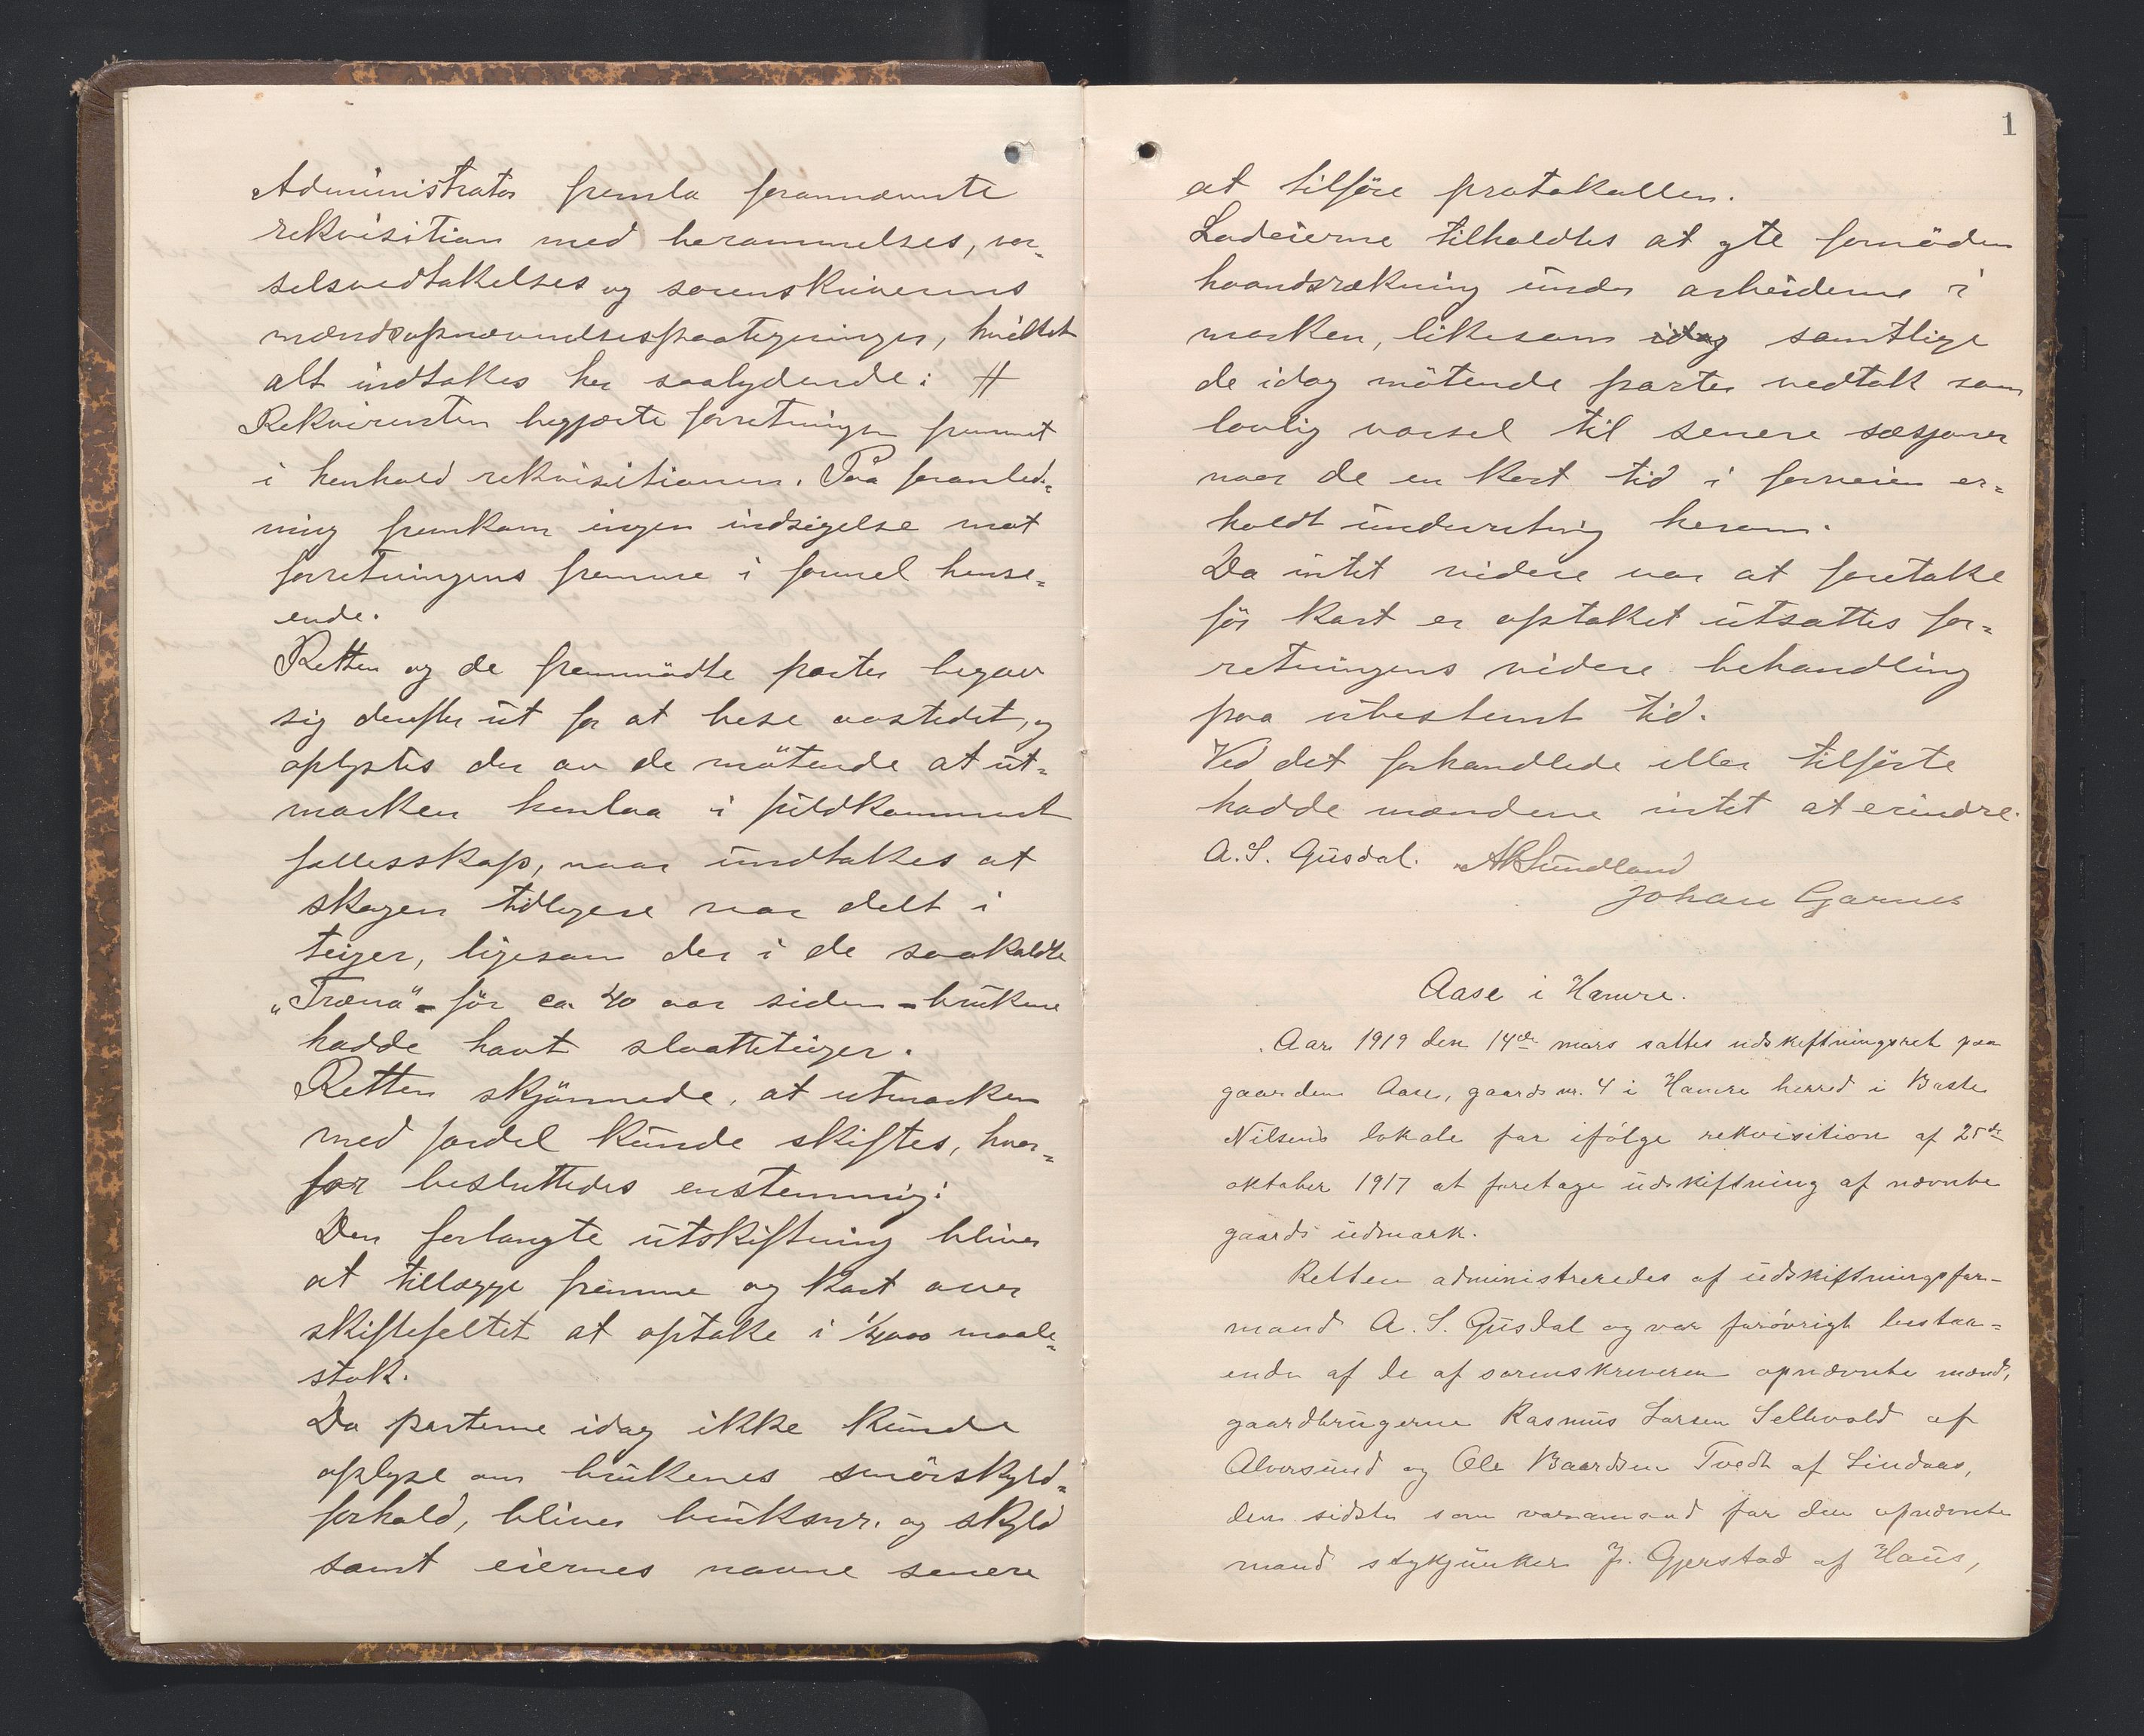 Administrator fremla forannævnte
rekvisition med berammelses, var-
selsvedtakelses og sorenskriverens
mændsopnævnelsespaategninger, hvilket
alt indtakes her saalydende: #
Rekvirenten begjærte forretningen fremmet
i henhold rekvisitionen. Paa foranled-
ning fremkom ingen indsigelse mot
forretningens fremme i formel hense-
ende.
Retten og de fremmödte parter begav
sig derefter ut for at bese aastedet, og
oplystes der av de mötende at ut-
marken henlaa i fuldkomment
fællesskap, naar undtakes at
skogen tidligere var delt i
teiger, ligesom der i de saakaldte
"Træna" - för ca. 40 aar siden - brukene
hadde havt slaatteteiger.
Retten skjönnede, at utmarken
med fordel kunde skiftes, hvor-
for besluttedes enstemmig:
Den forlangte utskiftning bliver
at tillægge fremme og kart over
skiftefeltet at optake i 1/2000 maale-
stok.
Da parterne idag ikke kunde
oplyse om brukenes smörskyld-
forhold, bliver bruksnr. og skyld
samt eiernes navne senere
1
at tilföre protokollen.
Lodeierne tilholdtes at yte fornöden
haandsrækning under arbeiderne i
marken, likesom idag samtlige
de idag mötende parter vedtok som
lovlig varsel til senere sessjoner
naar de en kort tid i forveien er-
holdt underretning herom.
Da intet videre var at foretake
för kart er optaket utsattes for-
retningens videre behandling
paa ubestemt tid.
Ved det forhandlede eller tilförte
hadde mændene intet at erindre.
A. S. Gusdal. AR Sundland
Johan Garnes
Aase i Hamre.
Aar 1919 den 14de mars sattes udskiftningsret paa
gaarden Aase, gaards nr. 4 i Hamre herred i Baste
Nilsens lokale for ifölge rekvisition af 25de
oktober 1917 at foretage udskiftning af nævnte
gaards udmark.
Retten administreredes af udskiftningsfor-
mand A. S. Gusdal og var forøvrigt bestaa-
ende af de af sorenskriveren opnævnte mænd,
gaardbrugerne Rasmus Larsen Sellevold af
Alversund og Ole Baardsen Tvedt af Lindaas,
den sidste som varamand for den opnævnte
mand stykjunker J. Gjerstad af Haus,